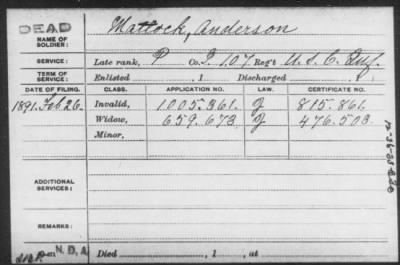 DEAD
NAME OF SOLDIER: Mattock, Anderson
SERVICE: Late rank, P Co. I, 107 Reg't U.S.C. Inf.
TERM OF SERVICE: Enlisted , 1 Discharged , 1
DATE OF FILING. CLASS. APPLICATION NO. LAW. CERTIFICATE NO.
1891. Feb. 26. Invalid, 1005.361. J 815.861.
Widow, 659.673 J 476.503.
Minor,
ADDITIONAL SERVICES:
REMARKS:
N.D.A. Died , 1 , at